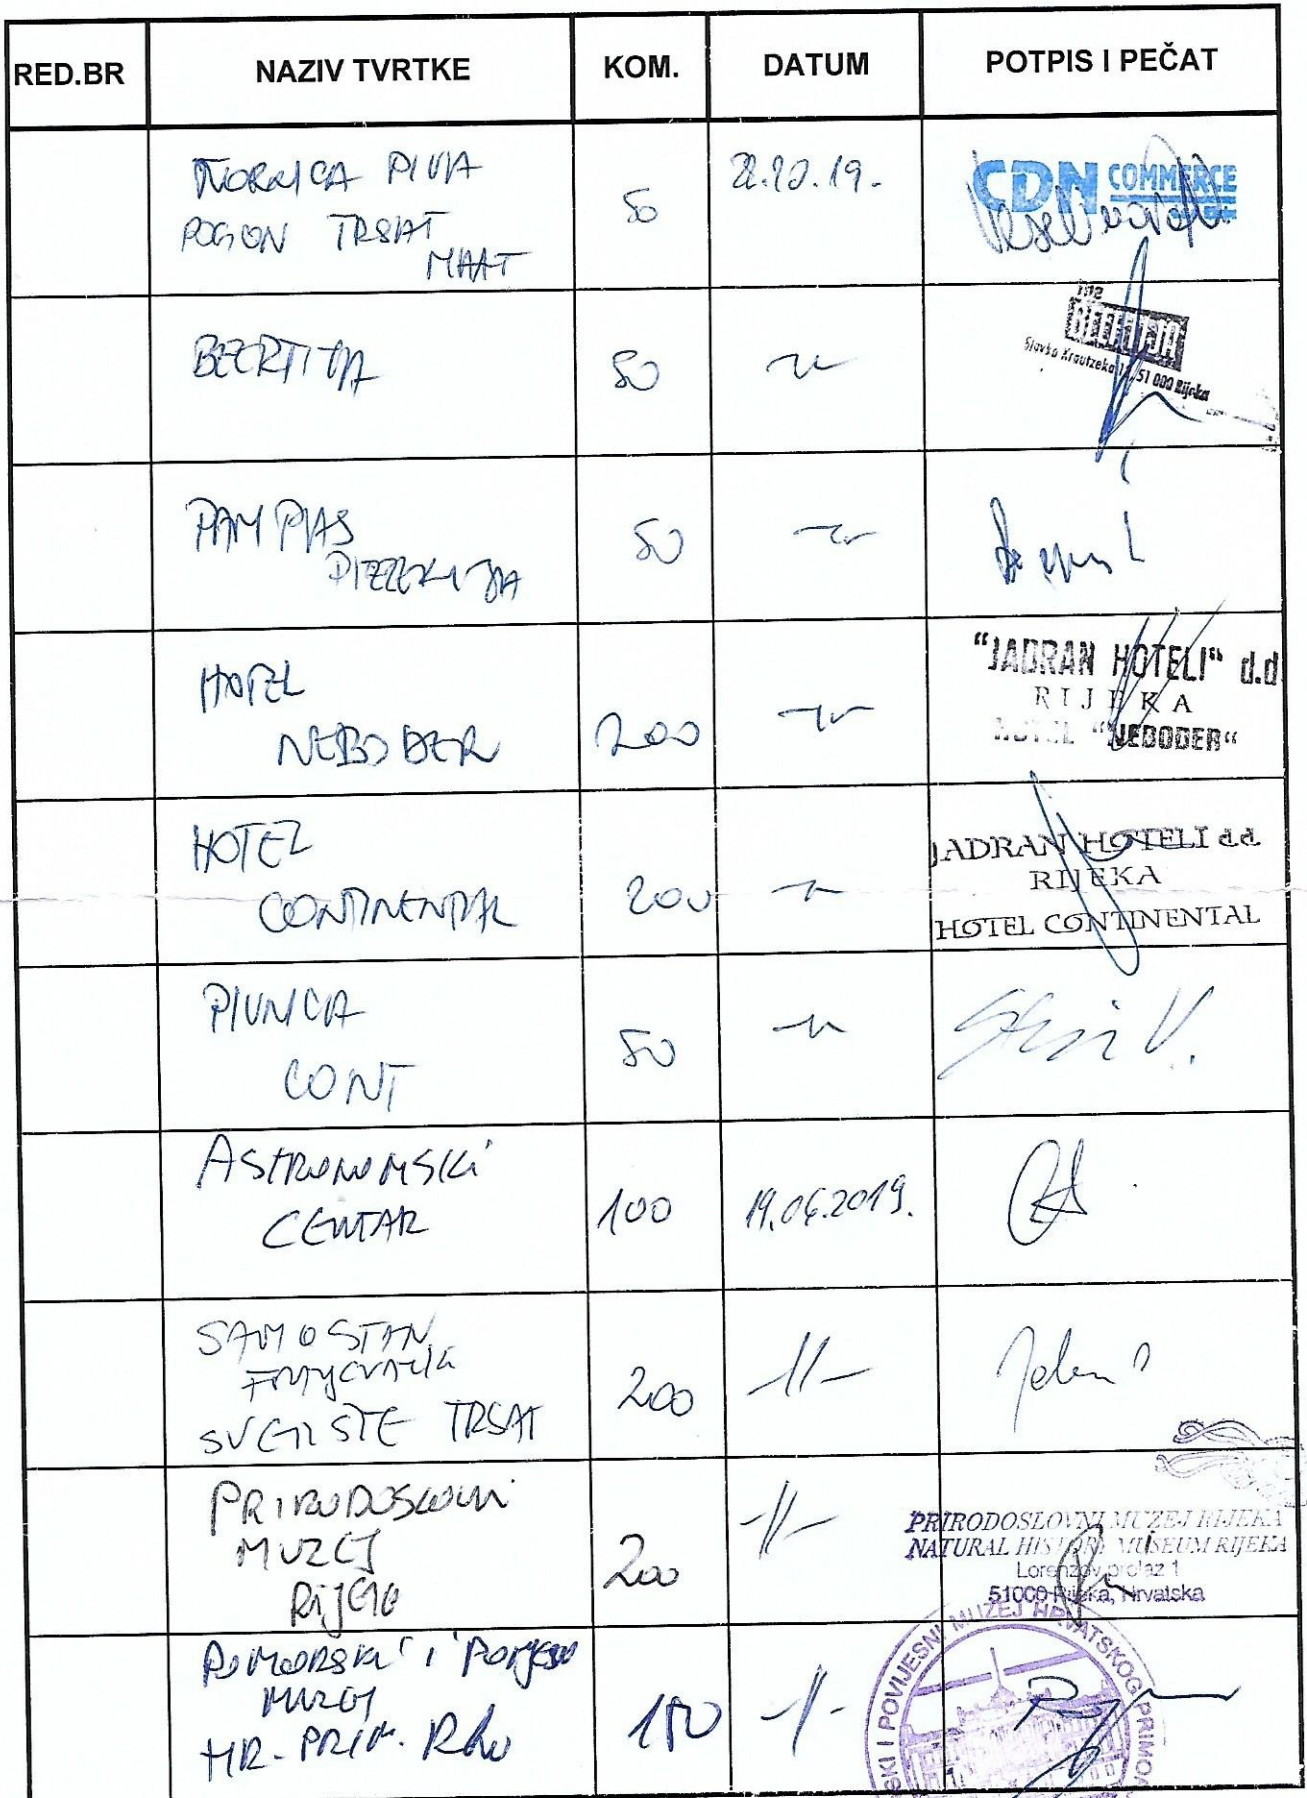 RED.BR NAZIV TVRTKE KOM. DATUM POTPIS I PEČAT
TVORNICA PIVA
POGON TRSAT
MAAT
50
CDN COMMERCE
50
Slavka Krautzeka 51 000 Rijeka
PAMPAS
PIZZERIJA
50
HOTEL
NEBODER
200
"JADRAN HOTELI" d.d.
RIJEKA
HOTEL "NEBODER"
HOTEL
CONTINENTAL
200
JADRAN HOTELI d.d.
RIJEKA
HOTEL CONTINENTAL
PIVNICA
CONT
50
ASTRONOMSKI
CENTAR
100
19.06.2019.
SAMOSTAN
SVETIŠTE TRSAT
200
-//-
PRIRODOSLOVNI
MUZEJ
RIJEKA
200
-//-
PRIRODOSLOVNI MUZEJ RIJEKA
NATURAL HISTORY MUSEUM RIJEKA
Lorenzov prolaz 1
51000 Rijeka, Hrvatska
POMORSKI I POVIJESNI
MUZEJ
HR. PRIM.
150
-//-
SKI I POVIJESNI MUZEJ HRVATSKOG PRIMO